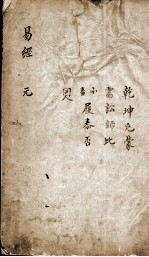 乾坤屯蒙
需訟師比
小畜履泰否
易經 元